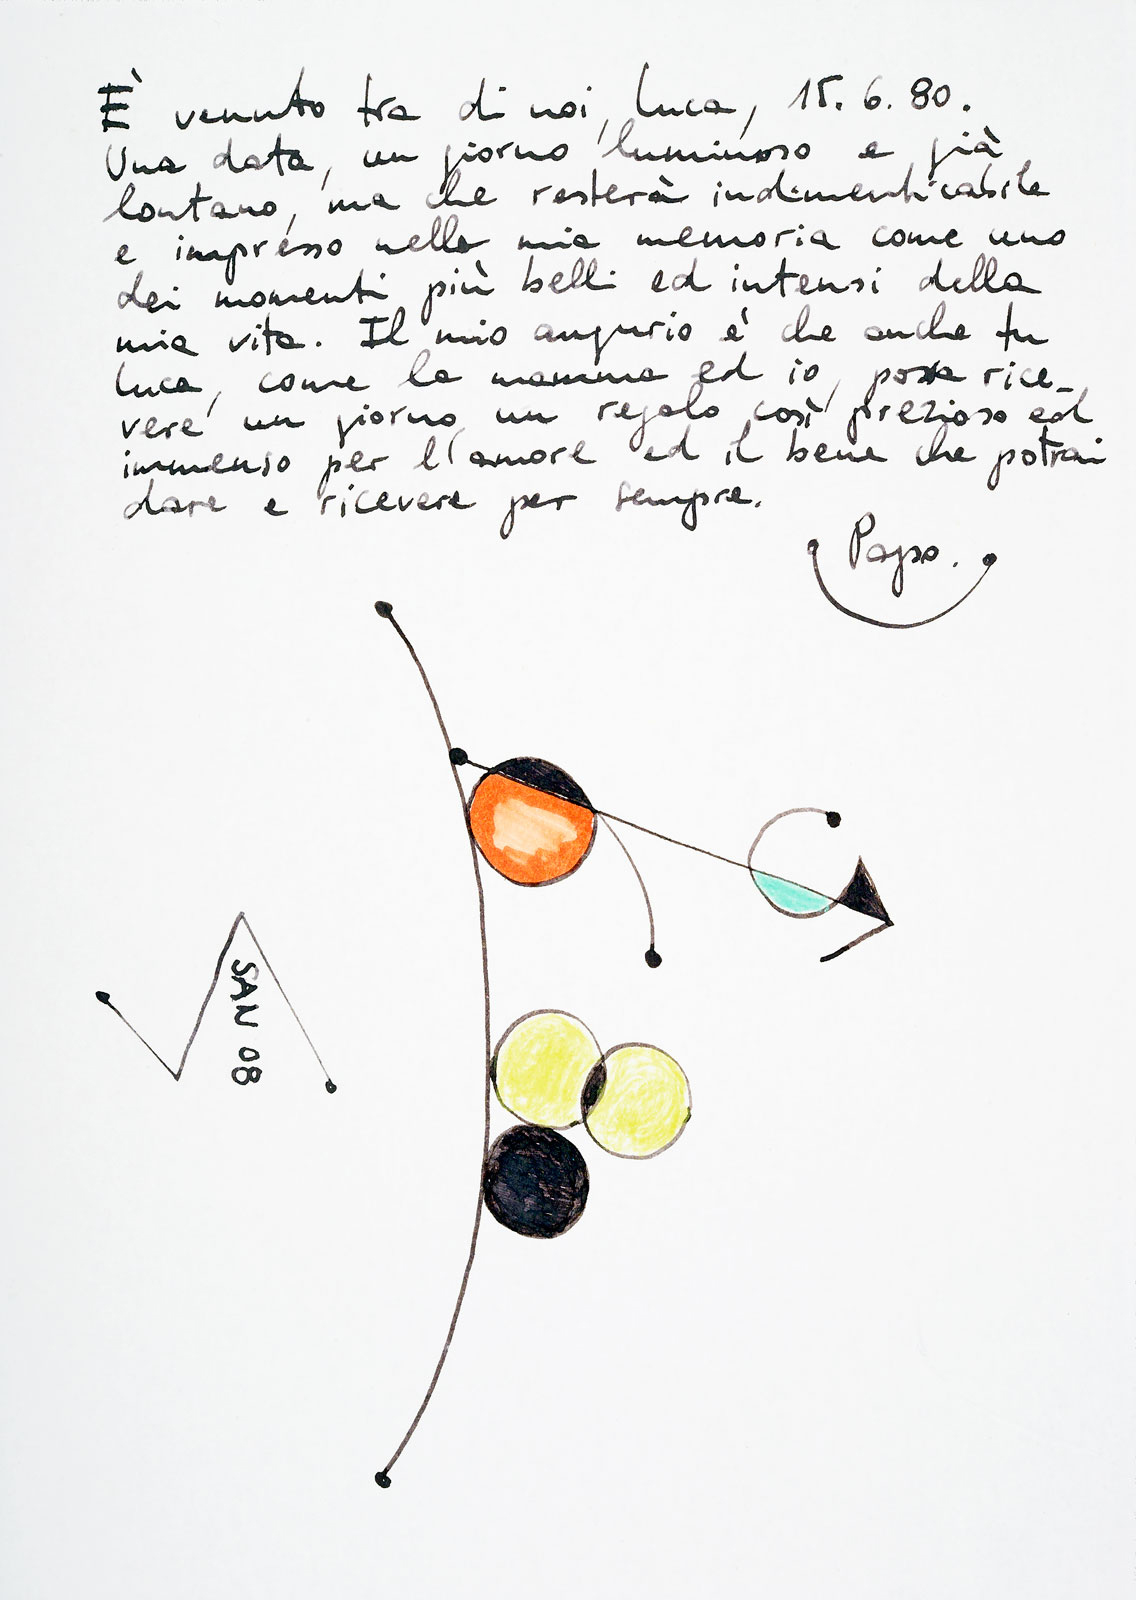 È venuto tra di noi, Luca, 15. 6. 80.
Una data, un giorno luminoso e già
lontano, ma che resterà indimenticabile
e impresso nella mia memoria come uno
dei momenti più belli ed intensi della
mia vita. Il mio augurio è che anche tu
Luca, come la mamma ed io, possa rice_
vere un giorno, un regalo così prezioso ed
immenso per l'amore ed il bene che potrai
dare e ricevere per sempre.
Papo.
SAN 08